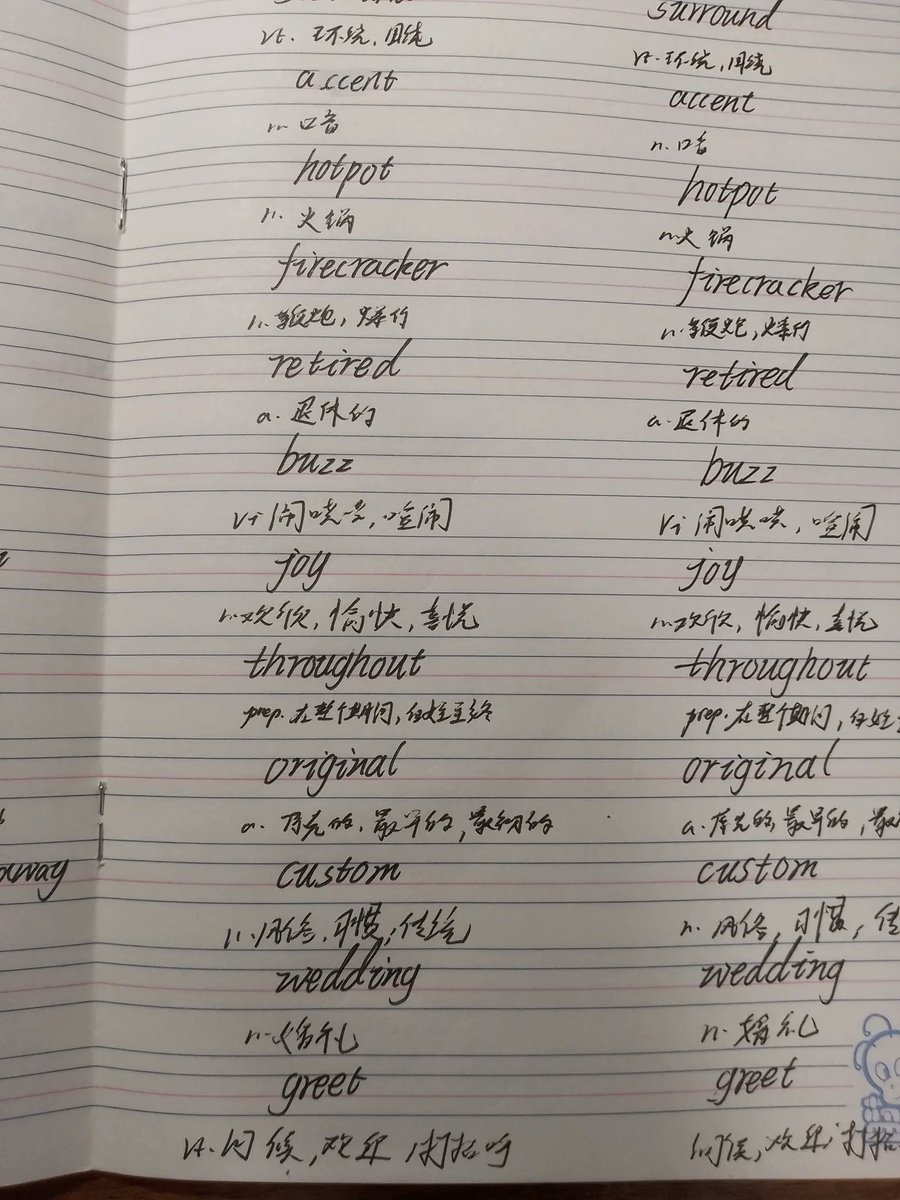 surround
vt. 环绕,围绕
vt. 环绕,围绕
accent
accent
n. 口音
n. 口音
hotpot
hotpot
n. 火锅
n. 火锅
firecracker
firecracker
n. 鞭炮,爆竹
n. 鞭炮,爆竹
retired
retired
a. 退休的
a. 退休的
buzz
buzz
vi 闹哄哄,喧闹
vi 闹哄哄,喧闹
joy
joy
n. 欢欣,愉快,喜悦
n. 欢欣,愉快,喜悦
throughout
throughout
prep. 在整个期间,自始至终
prep. 在整个期间,自始
original
original
a. 原先的,最早的,最初的
a. 原先的,最早的,最
away
custom
custom
n. 风俗,习惯,传统
n. 风俗,习惯,传
wedding
wedding
n. 婚礼
n. 婚礼
greet
greet
vt. 问候,欢迎,打招呼
问候,欢迎,打招